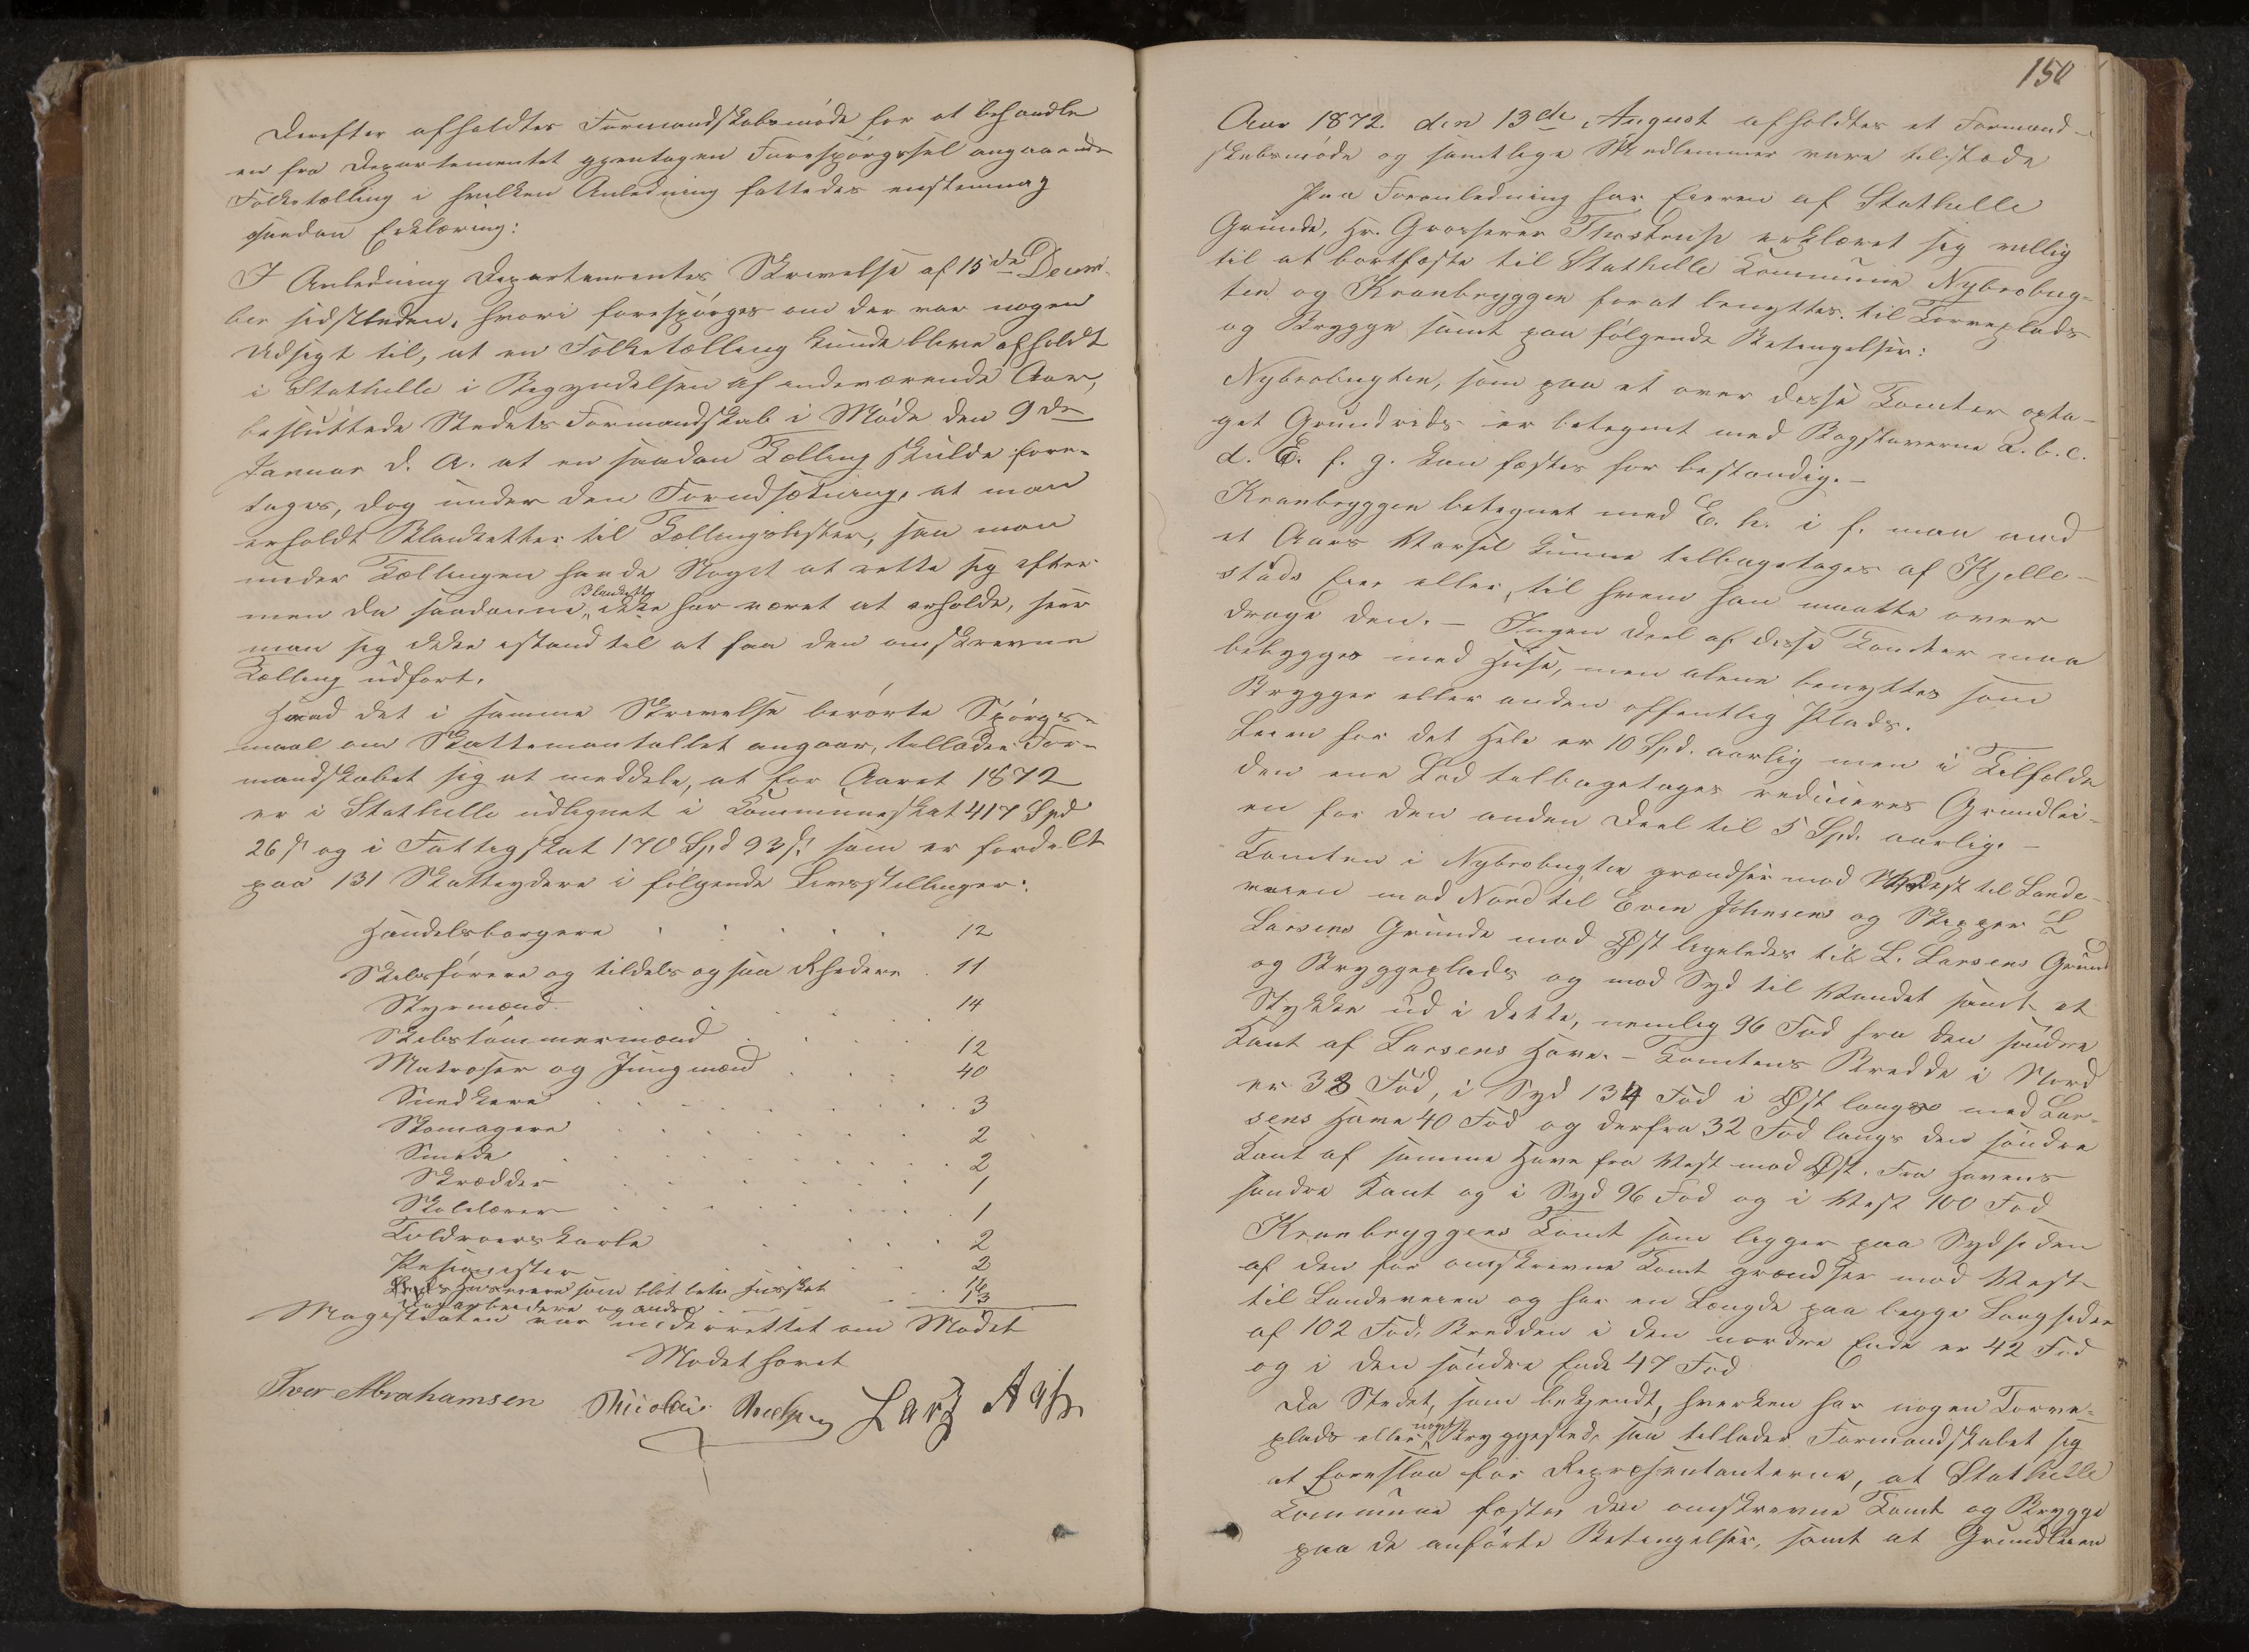 Derefter afholdtes Formandskabsmøde for at behandle
en fra Departementet gjentagen Forespørgssel angaaende
Folketælling i hvilken Anledning fattedes enstemmig
saadan Erklæring:
I Anledning Departementes Skrivelse af 15de Decem-
ber sidstleden, hvori forespørges om der var nogen
Udsigt til, at en Folketælling kunde blive afholdt
i Stathelle i Begyndelsen af indeværende Aar,
besluttede Stedets Formandskab i Møde den 9de
Januar d. A. at en saadan Tælling skulde fore-
tages, dog under den Forudsætning, at man
erholdt Blanketter til Tællingslister, saa man
under Tællingen havde Noget at rette sig efter
men da saadanne Blanketter ikke har været at erholde, seer
man sig ikke istand til at faa den omskrevne
Tælling udført.
Hvad det i samme Skrivelse berørte Spørgs-
maal om Skattemantallet angaar, tillader For-
mandskabet sig at meddele, at for Aaret 1872
er i Stathelle udlignet i Kommuneskat 417 Spd
26 ß og i Fattigskat 170 Spd 93 ß som er fordelt
paa 131 Skatteydere i følgende Livsstillinger:
Handelsborgere 12
Skibsførere og tildels ogsaa Rhedere 11
Styrmænd 14
Skibstømmermænd 12
Matroser og Jungmænd 40
Snedkere 3
Skomagere 2
Smede 2
Skrædder 1
Skolelærer 1
Toldroerskarle 2
Pensionister 2
Huseiere som blot betale Husskat 16
Dagarbeidere og andre 13
Magistraten var underrettet om Mødet
Mødet hævet
Iver Abrahamsen Nicolai Lars Aas
150
Aar 1872 den 13de August afholdtes et Formand-
skabsmøde og samtlige Medlemmer vare tilstæde
Paa Foranledning har Eieren af Stathelle
Grunde, Hr. Grosserer Thrstrup erklæret sig villig
til at bortfæste til Stathelle Kommune Nybrobug-
ten og Kranbryggen forat benyttes til Torveplads
og Brygge samt paa følgende Betingelser:
Nybrobugten, som paa et over disse Tomter opta-
get Grundrids er betegnet med Bogstaverne a. b. c.
d. E. f. g. kan fæstes for bestandig. –
Kranbryggen betegnet med E. h. i f. maa med
et Aars Varsel kunne tilbagetages af Kjelle-
stads Eier eller, til hvem han maatte over
drage den. – Ingen Deel af disse Tomter maa
bebygges med Huse, men alene benyttes som
Brygger eller anden offentlig Plads.
Leien for det Hele er 10 Spd. aarlig men i Tilfælde
den ene Lod tilbagetages reduceres Grundlei-
en for den anden Deel til 5 Spd. aarlig. –
Tomten i Nybrobugten grændser mod Vest til Lande-
veien mod Nord til Even Johnsens og Skipper L
Larsens Grunde mod Øst ligeledes til L. Larsens Grund
og Bryggeplads og mod Syd til Vandet samt et
Stykke ud i dette, nemlig 96 Fod fra den søndre
Kant af Larsens Have. – Tomtens Bredde i Nord
er 38 Fod, i Syd 134 Fod i Øst langs med Lar-
sens Have 40 Fod og derfra 32 Fod langs den søndre
Kant af samme Have fra Vest mod Øst. Fra Havens
søndre Kant og i Syd 96 Fod og i Vest 100 Fod
Kranbryggens Tomt som ligger paa Sydsiden
af den før omskrevne Tomt grændser mod Vest
til Landeveien og har en Længde paa begge Langsider
af 102 Fod. Bredden i den nordre Ende er 42 Fod
og i den søndre Ende 47 Fod
Da Stedet, som bekjendt, hverken har nogen Torve-
plads eller noget Bryggested, saa tillader Formandskabet sig
at foreslaa for Repræsentanterne, at Stathelle
Kommune fæster den omskrevne Tomt og Brygge
paa de anførte Betingelser, samt at Grundleien